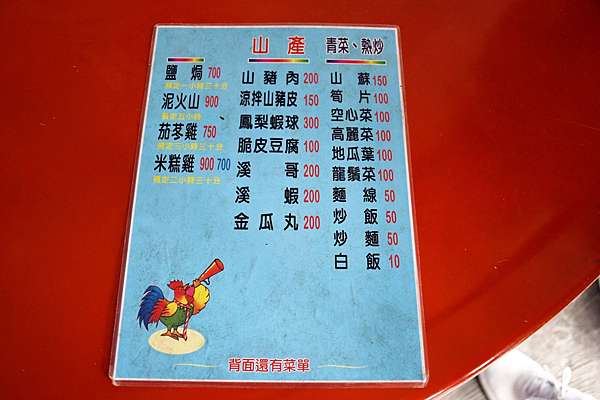 鹽焗 700
預定一小時三十分
泥火山 900
預定五小時
茄苳雞 750
預定三小時三十分
米糕雞 900 700
預定二小時三十分
山產
山豬肉 200
涼拌山豬皮 150
鳳梨蝦球 300
脆皮豆腐 100
溪哥 200
溪蝦 200
金瓜丸 200
青菜、熱炒
山蘇 150
筍片 100
空心菜 100
高麗菜 100
地瓜葉 100
龍鬚菜 100
麵線 50
炒飯 50
炒麵 50
白飯 10
背面還有菜單